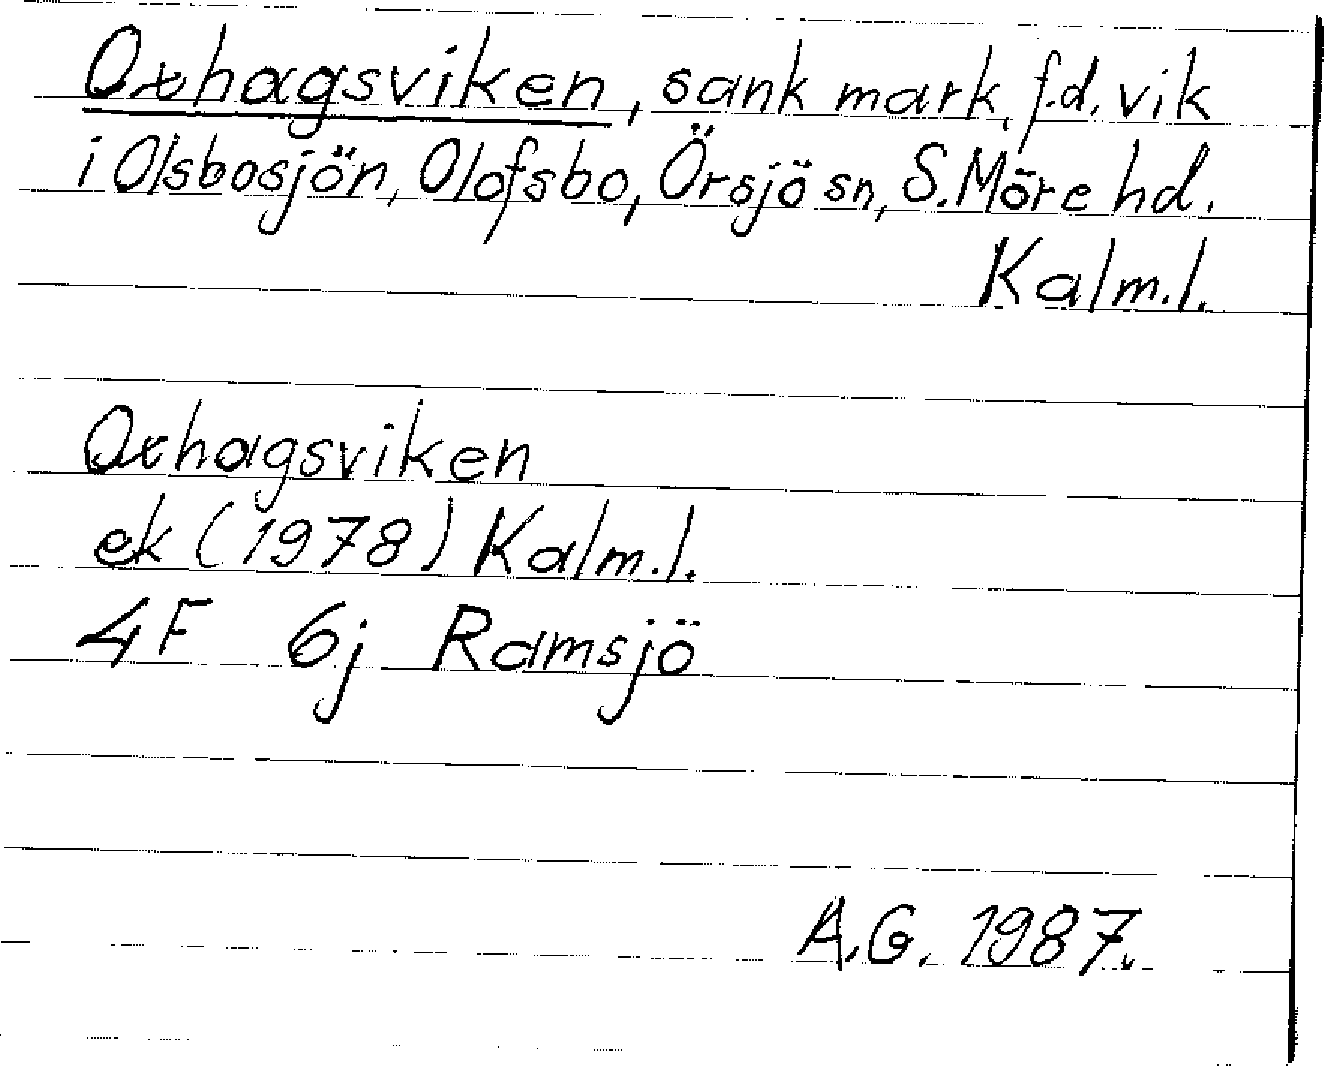 Oxhagsviken, sank mark, f.d. vik
i Olsbosjön, Olofsbo, Örsjö sn, S. Möre hd.
Kalm.l.
Oxhagsviken
ek (1978) Kalm.l.
4F 6j Ramsjö
A.G. 1987.